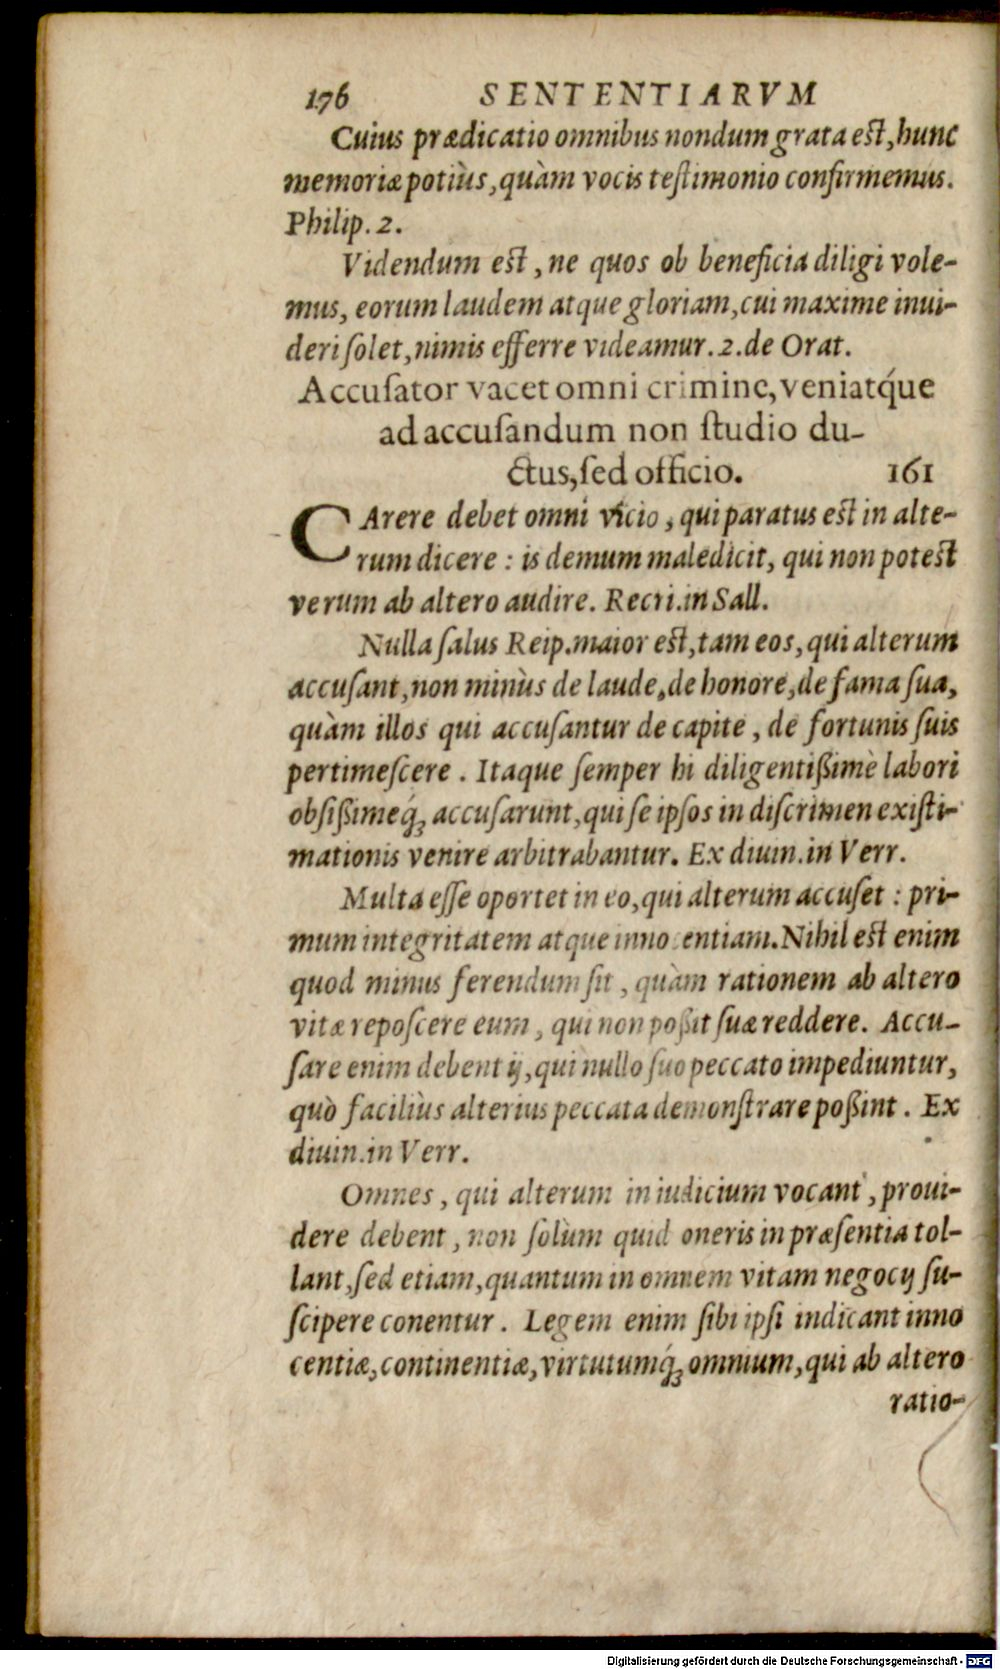 176 SENTENTIARVM
Cuius prædicatio omnibus nondum grata est, hunc
memoriæ potiùs, quàm vocis teſtimonio confirmemus.
Philip. 2.
Videndum est, ne quos ob beneficia diligi vole-
mus, eorum laudem atque gloriam, cui maxime inui-
deri ſolet, nimis efferre videamur. 2. de Orat.
Accuſator vacet omni crimine, veniatq́ue
ad accuſandum non ſtudio du-
ctus, ſed officio. 161
CArere debet omni vicio, qui paratus est in alte-
rum dicere : is demum maledicit, qui non potest
verum ab altero audire. Recri. in Sall.
Nulla ſalus Reip. maior est, tam eos, qui alterum
accuſant, non minùs de laude, de honore, de fama ſua,
quàm illos qui accuſantur de capite, de fortunis ſuis
pertimeſcere. Itaque ſemper hi diligentißimè labori
obſißimeq́ꝫ accuſarunt, qui ſe ipſos in diſcrimen exiſti-
mationis venire arbitrabantur. Ex diuin. in Verr.
Multa eſſe oportet in eo, qui alterum accuſet : pri-
mum integritatem atque innocentiam. Nihil est enim
quod minus ferendum ſit, quàm rationem ab altero
vitæ repoſcere eum, qui non poßit ſuæ reddere. Accu-
ſare enim debent ij, qui nullo ſuo peccato impediuntur,
quò faciliùs alterius peccata demonſtrare poßint. Ex
diuin. in Verr.
Omnes, qui alterum in iudicium vocant, proui-
dere debent, non ſolùm quid oneris in præſentia tol-
lant, ſed etiam, quantum in omnem vitam negocij ſu-
ſcipere conentur. Legem enim ſibi ipſi indicant inno
centiæ, continentiæ, virtutumq́ꝫ omnium, qui ab altero
ratio-
Digitalisierung gefördert durch die Deutsche Forschungsgemeinschaft - DFG